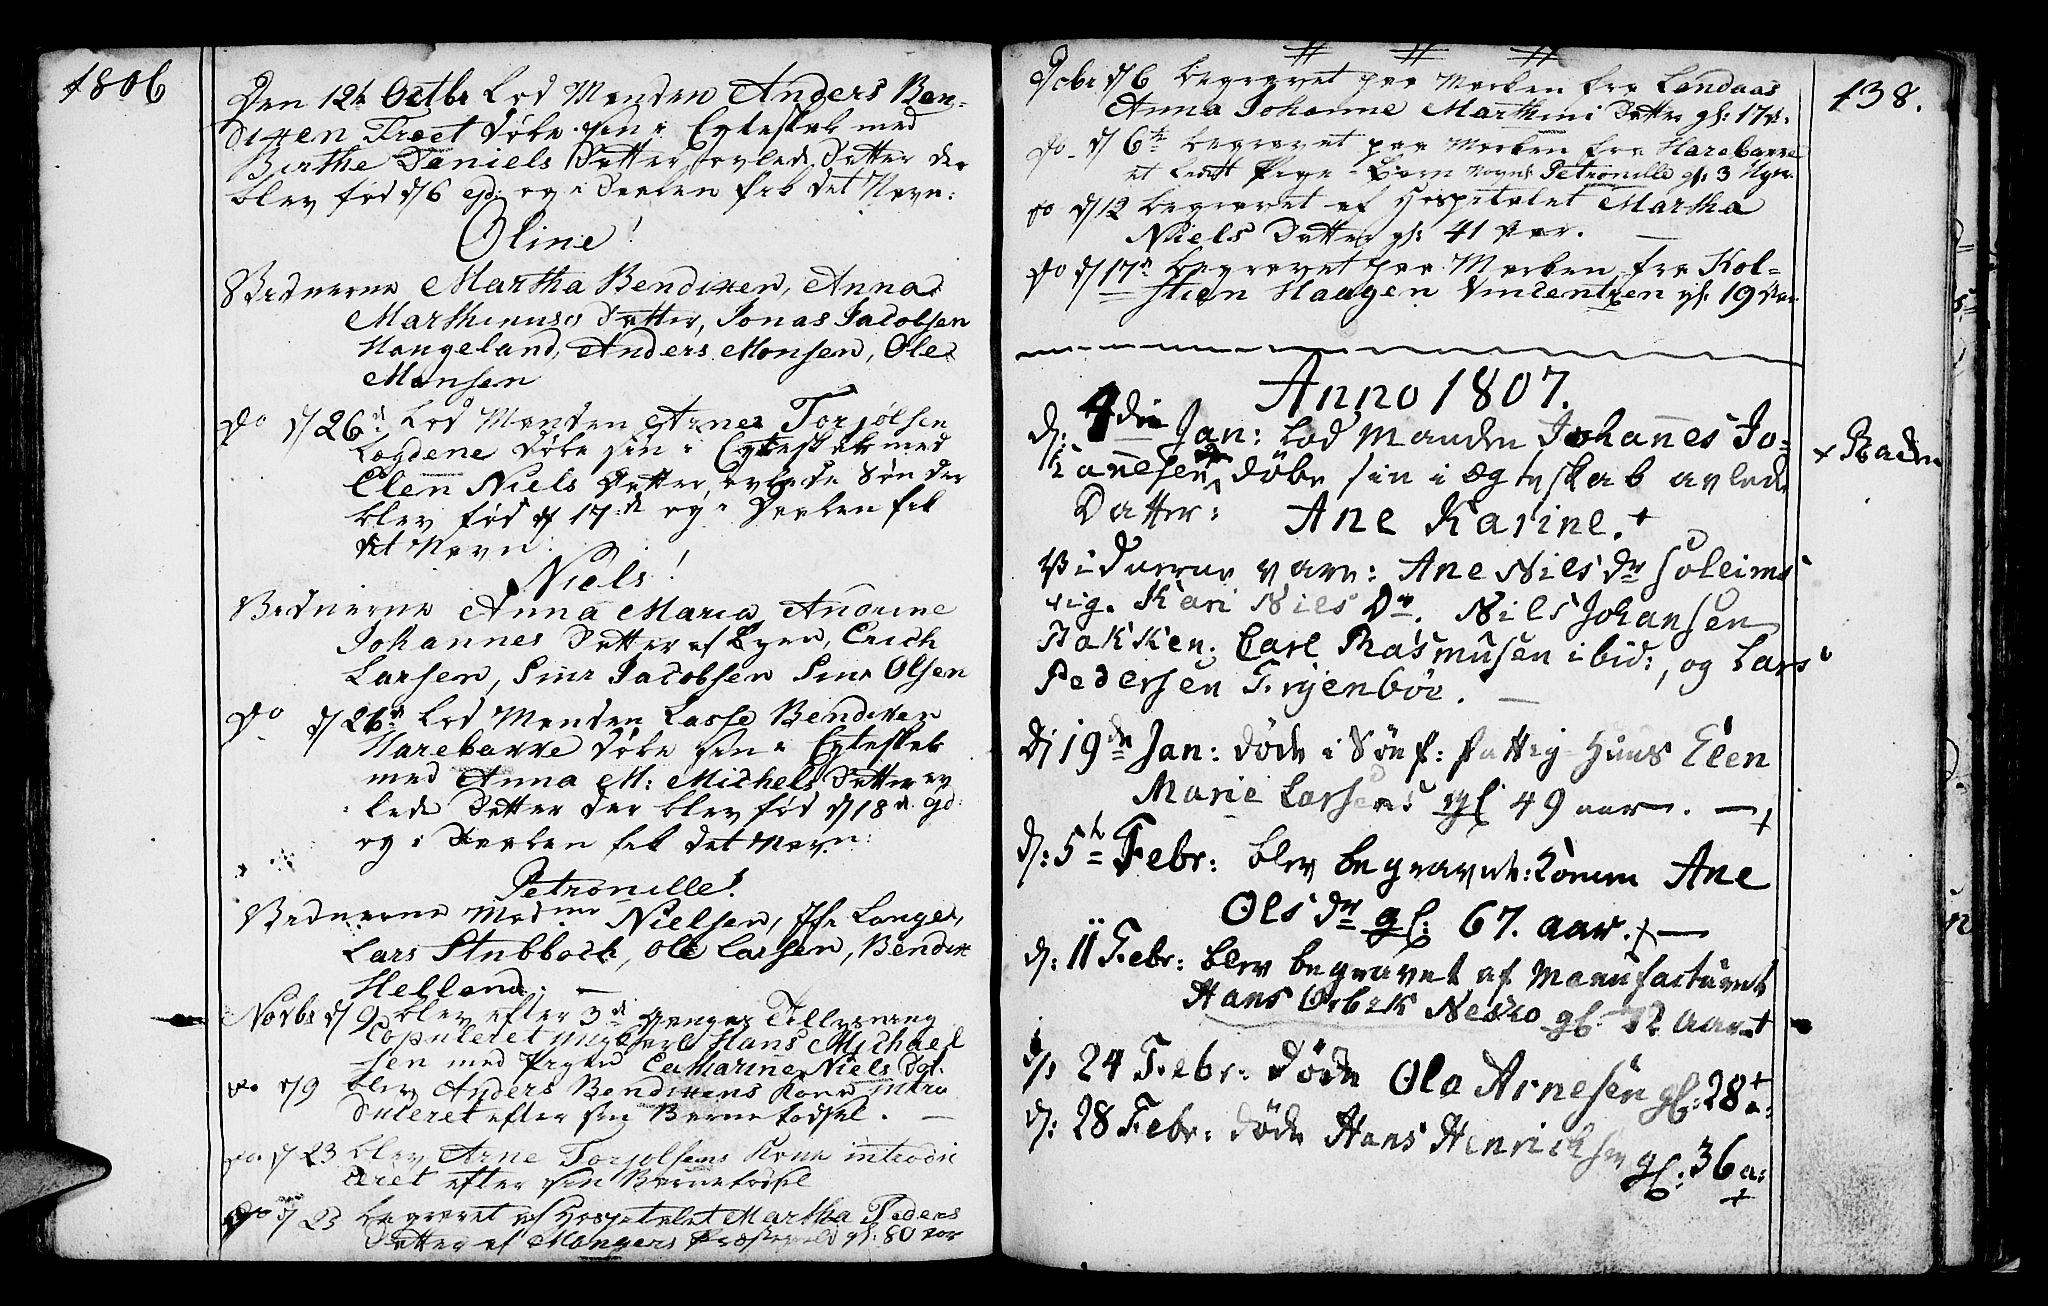 1806
Den 12te Octbr Lod Manden Anders Ben-
dixen Troet Døbe sin i Egteskab med
Birthe Daniels Datter avlede Datter der
blev fød d/ 6 ejd: og i Daaben fik det Navn:
Oline!
Vidnerne Martha Bendixen, Anna
Marthinuses Datter, Jonas Jacobsen
Haugeland, Anders Monsen, Ole
Monsen
do d/ 26d Lod Manden Arne Torjølsen
Løgdene Døbe sin i Egteskab med
Elen Niels Datter, avlede Søn der
blev fød d/ 17d og i Daaben fik
det Navn:
Niels!
Vidnerne Anna Maria, Andrine
Johannes Datter af Byen, Erich
Larsen, Siur Jacobsen Siur Olsen
do d/ 26d Lod Manden Lasse Bendixen
Harebakke Døbe sin i Egteskab
med Anna M: Michels Datter av
lede Datter der blev fød d/ 18d ejd:
og i Daaben fik det Navn:
Petronille!
Vidnerne Madme Nielsen, Jfr Langes,
Lars Stubboch, Ole Larsen, Bendix
Helland. —
Novbr d/ 9 blev efter 3d Ganges Tillysning
Copuleret Ungkarl Hans Michael
sen med Pigen Catharine Niels Dat.
do d/ 9 blev Anders Bendixens Kone intro
duceret efter sin Barnefødsel. —
do d/ 23 blev Arne Torjolsens Kone introdu
ceret efter sin Barnefødsel
do d/ 23 begravet af Hospitalet Martha Peders
Datter af Mangers Præstegield gl: 80 Aar
138.
Xbr d/ 6 begravet paa Marken fra Landaas
Anna Johanne Marthini Datter gl: 17
do d/ 6te begravet paa Marken fra Harebakke
et lidet Pige-Barn navnl Petronille gl: 3 Uger
do d/ 12 begravet af Hospitalet Martha
Niels Datter gl: 41 Aar. —
do d/ 17d begravet paa Marken fra Kol-
stien Haagen Vincentzen gl: 19 Aar
Anno 1807.
d: 4die Jan: lod Manden Johanes Jo-
hannesen døbe sin i Ægteskab avlede
Datter: Ane Karine. +
+
Vidnerne vare: Ane Nilsdr Soleims
vig. Kari Nilsdr. Nils Johansen
Carl Rasmusen ibid:, og Lars
Pedersen —
D/ 19de Jan: døde i fattig-Huus Elen
Marie gl 49 aar. — +
d: 5te Febr: blev begravet: Konen Ane
Olsdr gl: 67. aar. + —
d: 11 Febr: blev begravet af Manufacturet
Hans gl: aar +
d: 24 Febr: døde Ole Arnesen gl: 28 a: +
d: 28 Febr: døde Hans Henrichsen gl: 36 a:
+